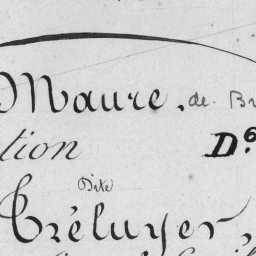 Maure, de Br
tion D.6
Dite
Tréluyer,